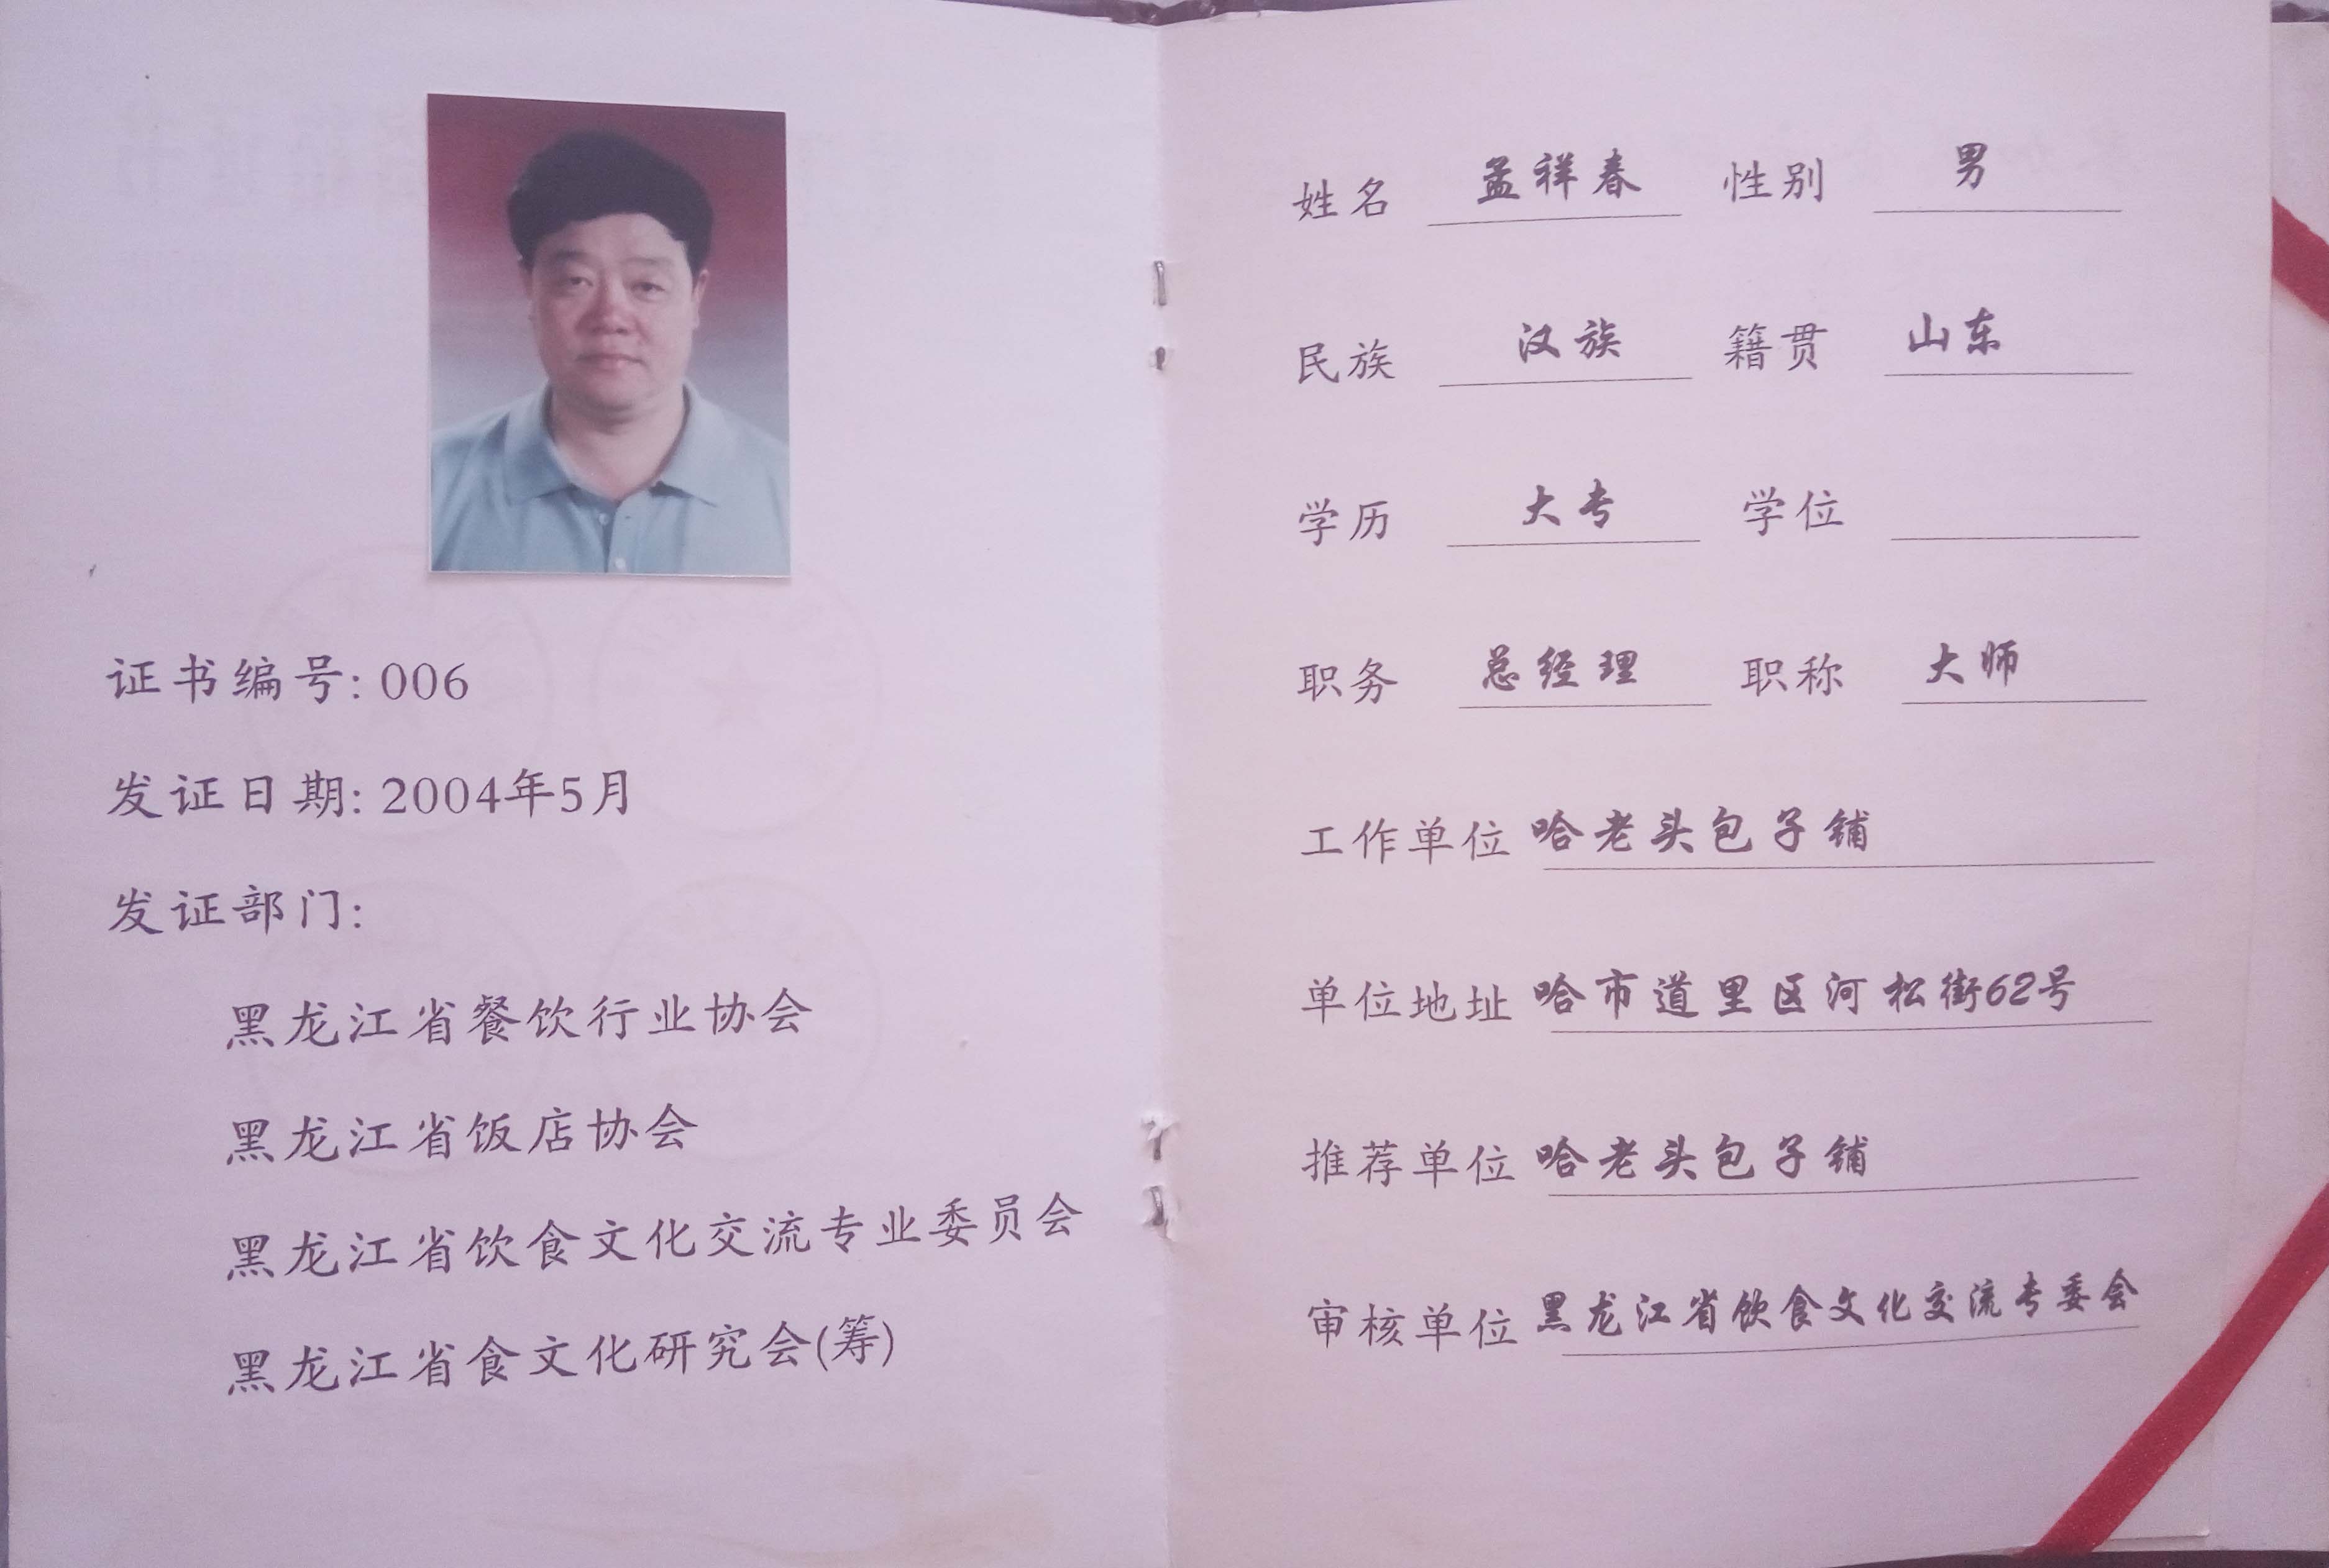 证书编号: 006
发证日期: 2004年5月
发证部门:
黑龙江省餐饮行业协会
黑龙江省饭店协会
黑龙江省饮食文化交流专业委员会
黑龙江省食文化研究会(筹)
姓名 孟祥春 性别 男
民族 汉族 籍贯 山东
学历 大专 学位
职务 总经理 职称 大师
工作单位 哈老头包子铺
单位地址 哈市道里区河松街62号
推荐单位 哈老头包子铺
审核单位 黑龙江省饮食文化交流专委会